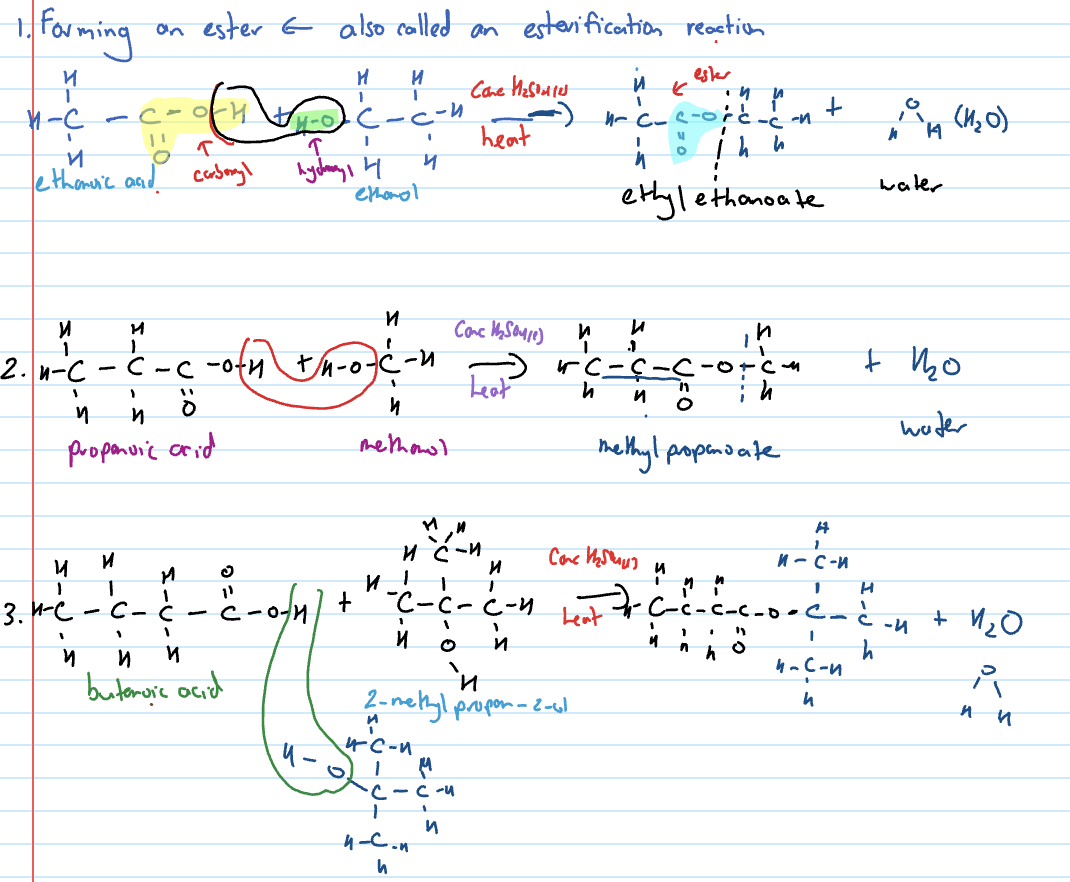 1. Forming an ester ← also called an esterification reaction
H H H H H H
H-C - C-O-H + H-O-C-C-H Conc H2SO4(l) → heat H-C-C-O-C-C-H + O H H (H2O)
ester
H O H H H O H H
carboxyl hydroxyl
ethanoic acid. ethanol ethyl ethanoate water
H H H H H H
2. H-C-C-C-O-H + H-O-C-H Conc H2SO4(l) → heat H-C-C-C-O-C-H + H2O
H H O H H H O H
propanoic acid methanol methyl propanoate water
H H H O H H H H H H H H
3. H-C-C-C-C-O-H + H-C-C-C-H Conc H2SO4(l) → heat H-C-C-C-C-O-C-C-H + H2O
H-C-H
H H H H O H H H H O H
H-C-H
H
butanoic acid H O H H
2-methyl propan-2-ol
H
H-C-H
H-O H
C-C-H
H
H-C-H
H